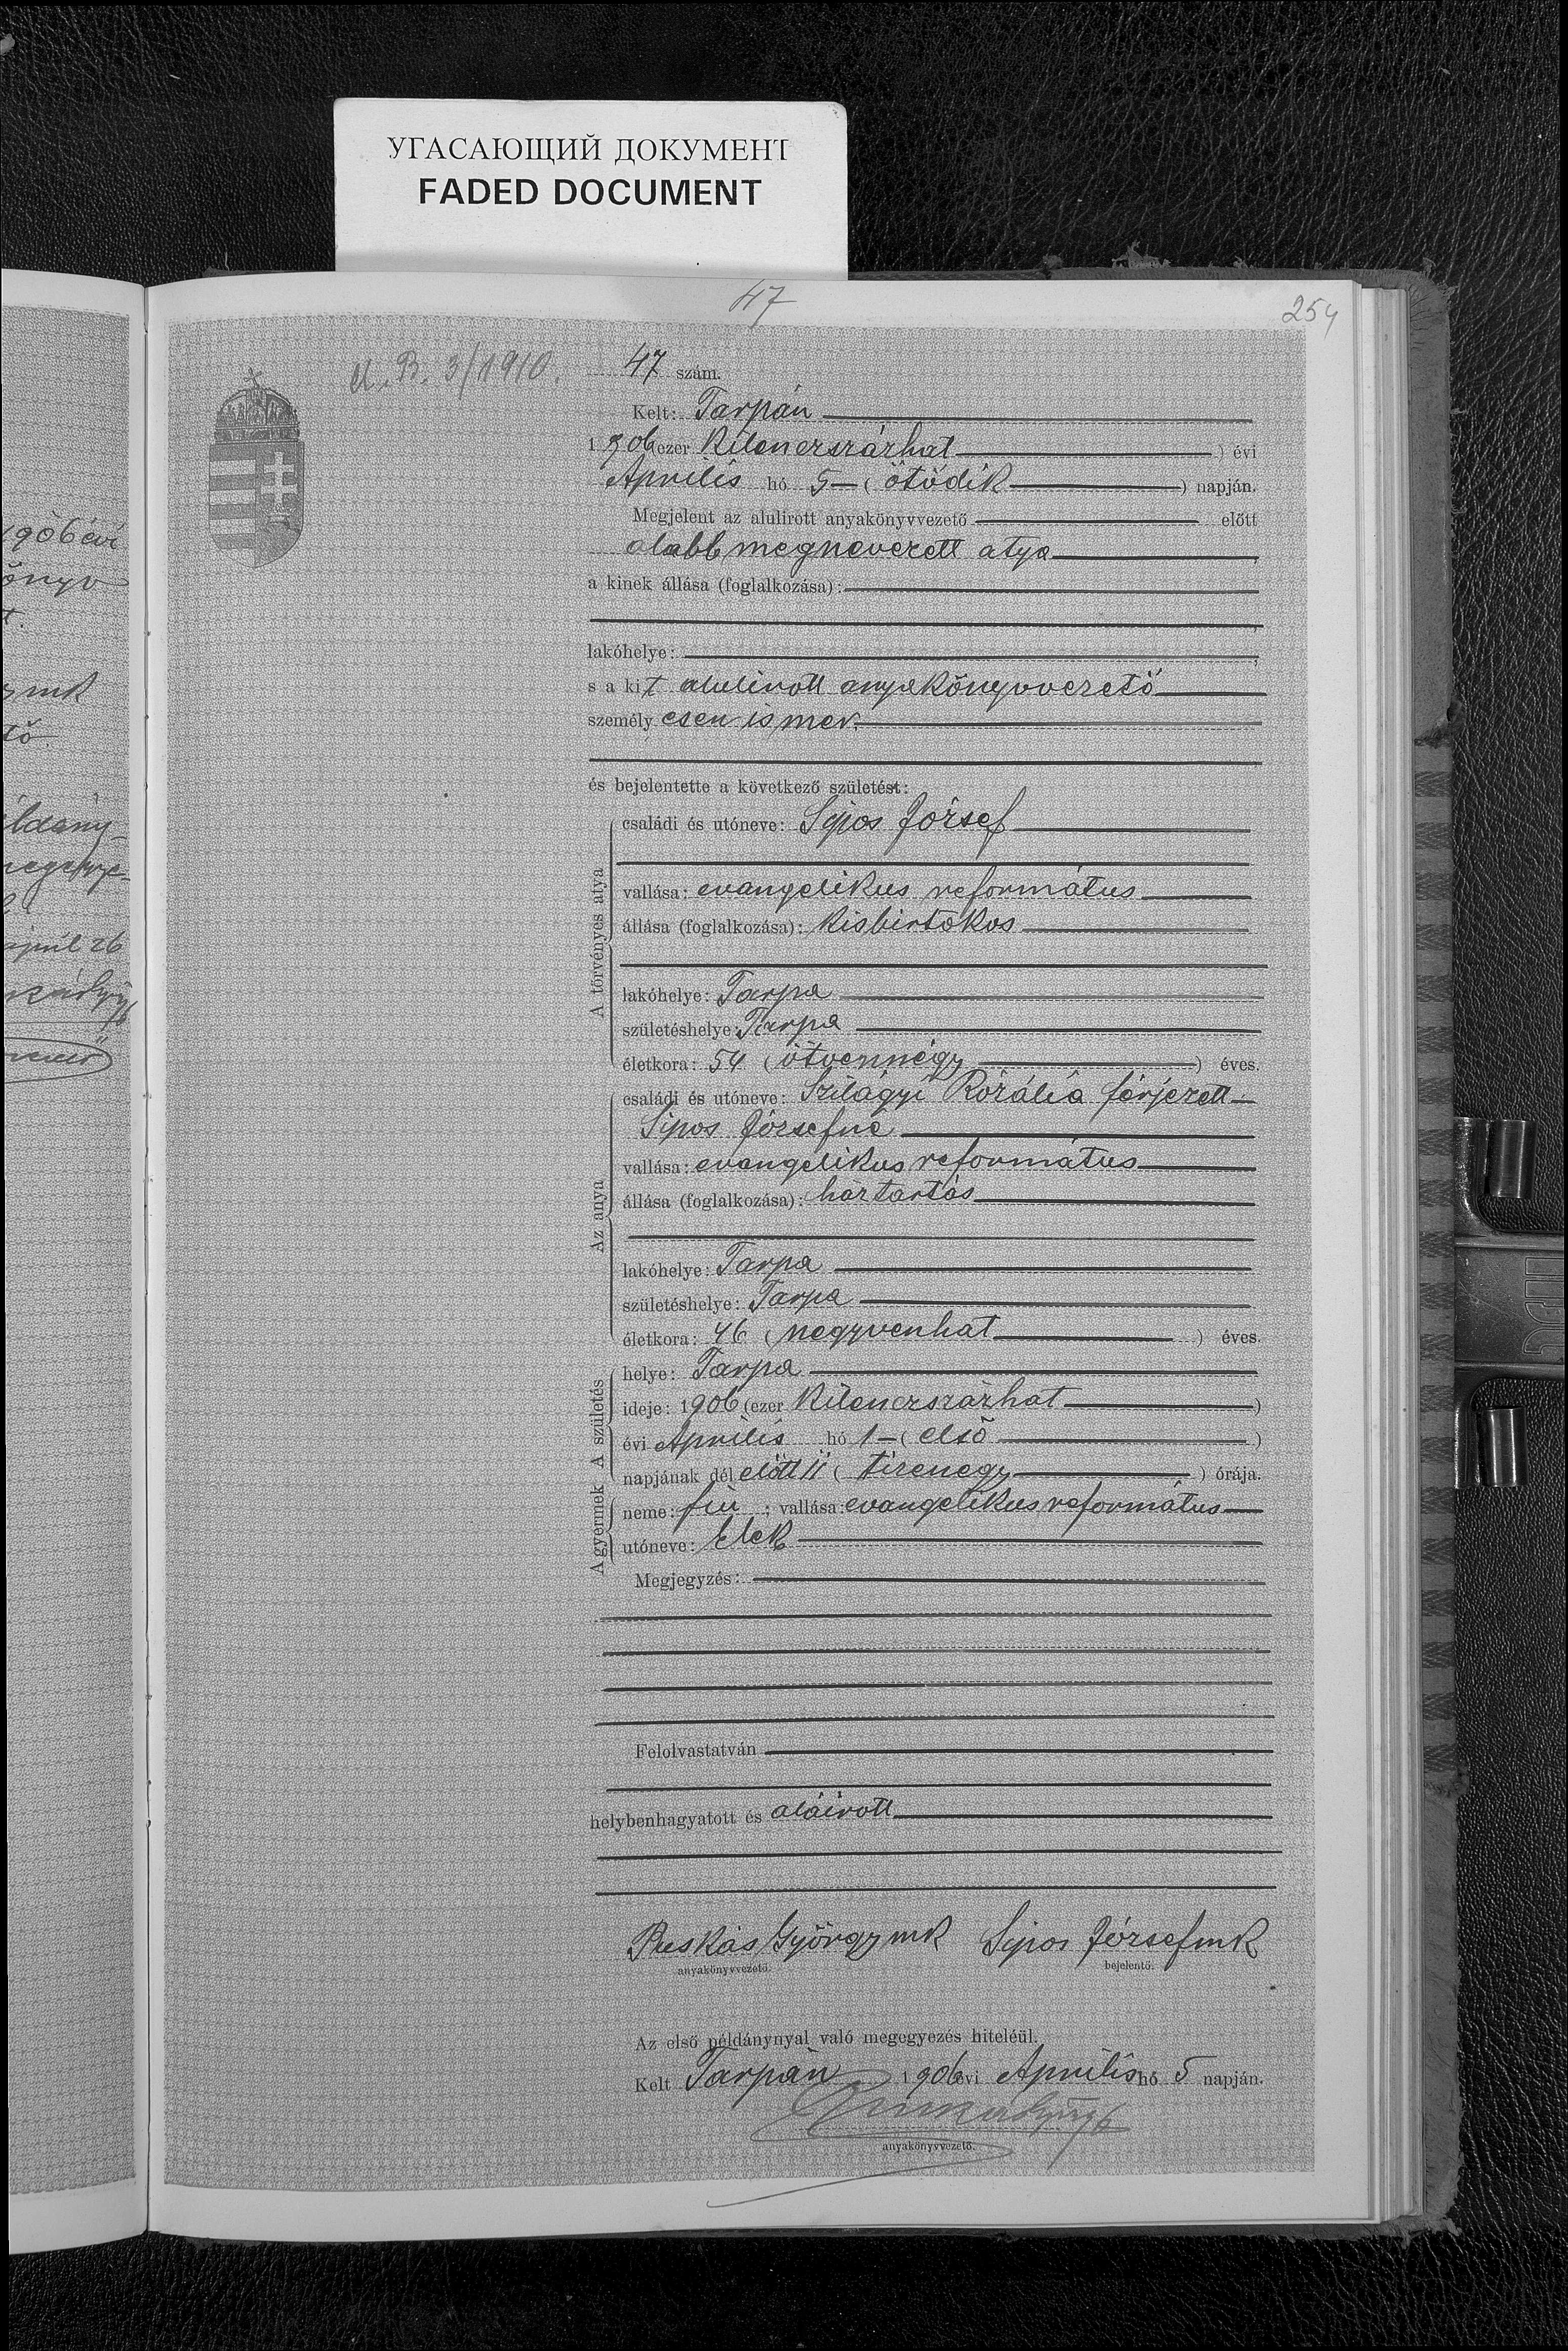 УГАСАЮЩИЙ ДОКУМЕНТ
FADED DOCUMENT
47
254
B. 3/1910.
47 szám.
Kelt: Tarpán
1906 (ezer kilenczszázhat) évi
Április hó 5 (ötödik) napján.
Megjelent az alulirott anyakönyvvezető előtt
alább megnevezett atya,
a kinek állása (foglalkozása):
lakóhelye:
s a kit alulirott anyakönyvvezető
személyesen ismer.
és bejelentette a következő születést:
A törvényes atya
családi és utóneve: Sipos József
vallása: evangelikus református
állása (foglalkozása): kisbirtokos
lakóhelye: Tarpa
születéshelye: Tarpa
életkora: 54 (ötvennégy) éves.
Az anya
családi és utóneve: Szilágyi Rozália férjezett
Sipos Józsefné
vallása: evangelikus református
állása (foglalkozása): háztartás
lakóhelye: Tarpa
születéshelye: Tarpa
életkora: 46 (negyvenhat) éves.
A születés
helye: Tarpa
ideje: 1906 (ezer kilenczszázhat)
évi Április hó 1 (első)
napjának dél előtt 11 (tizenegy) órája.
A gyermek
neme: fiú; vallása: evangelikus református
utóneve: Elek
Megjegyzés:
Felolvastatván
helybenhagyatott és aláirott
Puskás György mk Sipos József mk
anyakönyvvezető. bejelentő.
Az első példánynyal való megegyezés hiteléül.
Kelt Tarpán 1906 évi Április hó 5 napján.
anyakönyvvezető.
1906 évi
mk
april 26